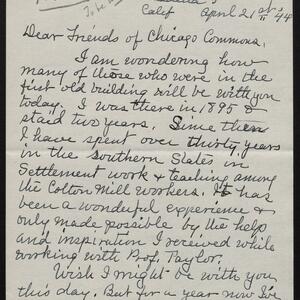 Calif April 21st '44
Dear Friends of Chicago Commons,
I am wondering how
many of those who were in the
first old building will be with you
today. I was there in 1895 &
staid two years. Since then
I have spent over thirty years
in the Southern States in
Settlement work & teaching among
the Cotton Mill Workers. It has
been a wonderful experience &
only made possible by the help
and inspiration I received while
working with Prof. Taylor.
Wish I might be with you
this day. But for a year now I've